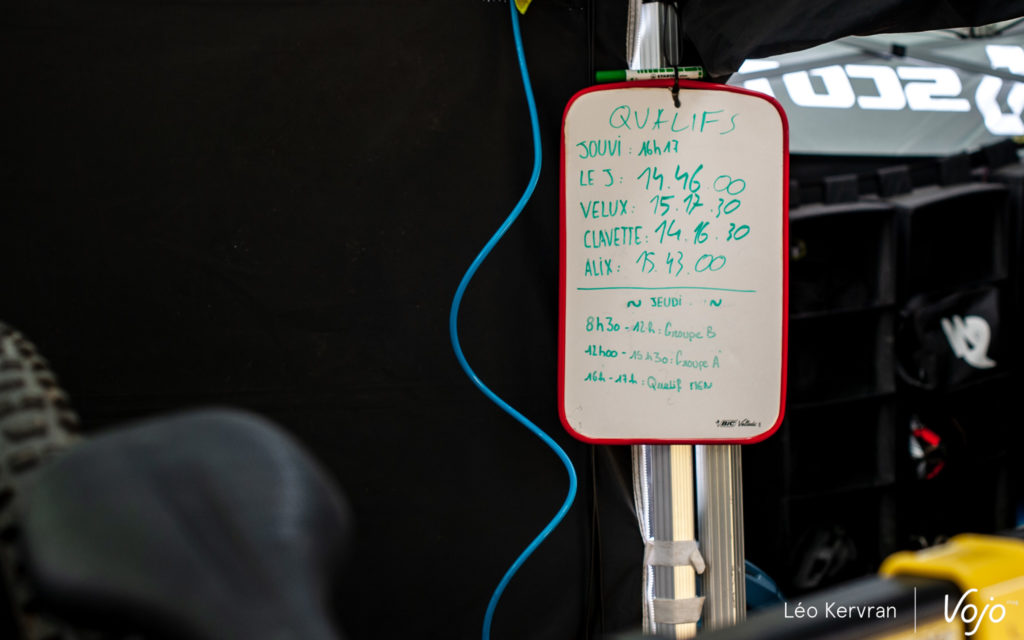 QUALIFS
JOUVI : 16h17
LE J : 14.46.00
VELUX : 15.17.30
CLAVETTE : 14.16.30
ALIX : 15.43.00
~ JEUDI ~
8h30 - 12h : Groupe B
12h00 - 15h30 : Groupe A
16h - 17h : Qualif MEN
BIC Velleda
SCO
Léo Kervran
Vojo